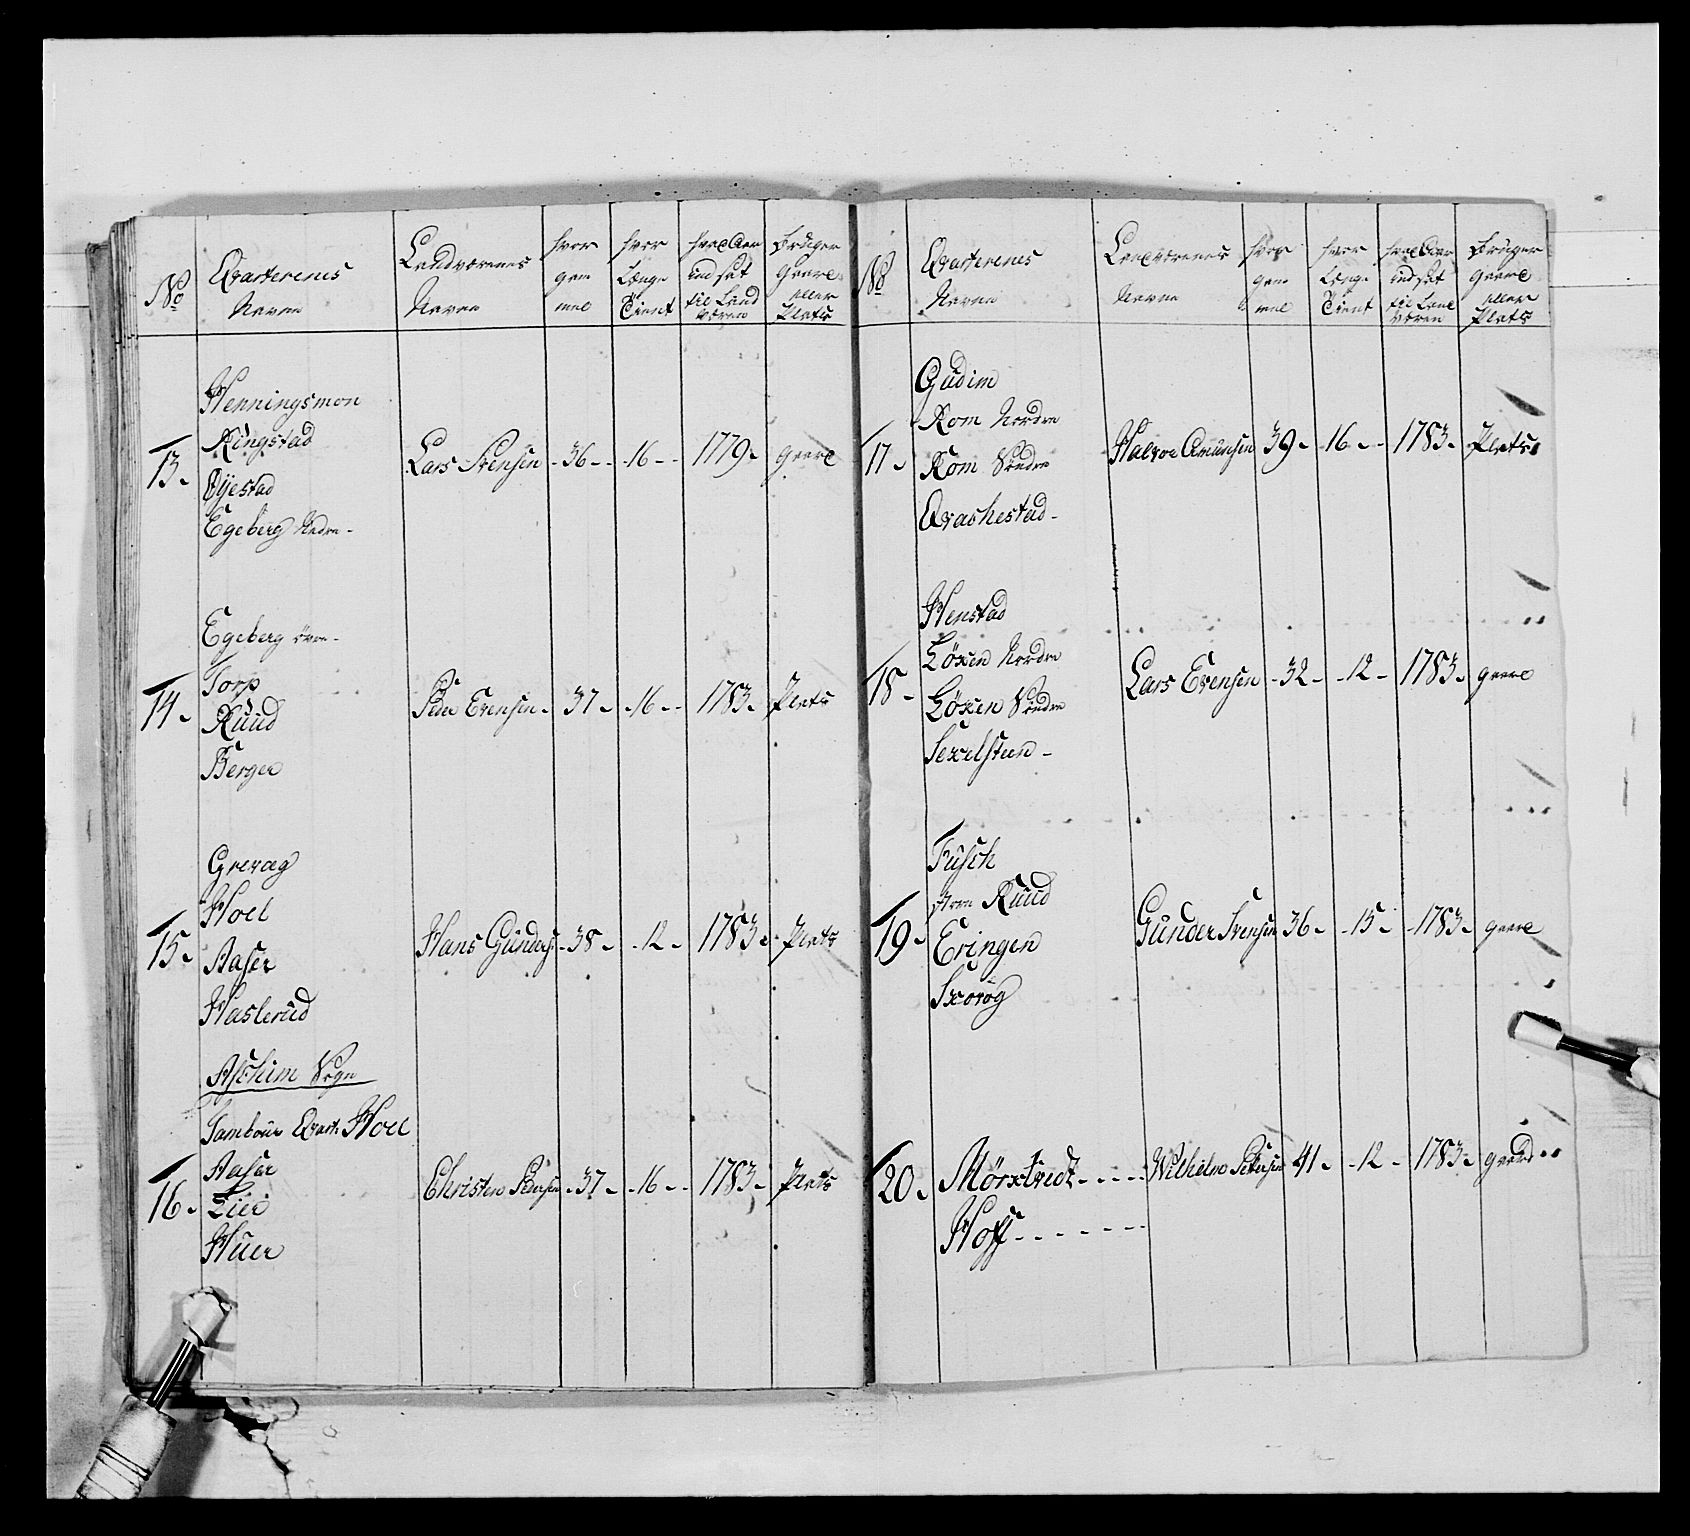 No
Qvarterenes
Navne
Landværenes
Navne
hvor
gam
mel
hvor
Længe
Tient
hvad Aar
ind sat
til Land
væren
Bruger
Gaard
eller
Plats
Henningsmon
Ringstad
Øjestad
Egeberg Nedre -
13. Lars Svensen - 36 - 16 - 1779. Gaard
Egeberg övre -
Torp
Ruud
Berger
14. Peder Evensen - 37 - 16 - 1783. Plats
Grevæg
Hoel
Aaser
Haslerud
15. Hans Gunders - 38 - 12 - 1783. Plats
Aschim Sogn
Tambour Qvart. Hoel
Aaser
Lier
Huer
16. Christen Pedersen - 37 - 16 - 1783. Plats
No
Qvarterenes
Navne
Landværenes
Navne
hvor
gam
mel
hvor
Længe
Tient
hvad Aar
ind sat
til Land
væren
Bruger
Gaard
eller
Plats
Gudim
Rom Nordre
Rom Söndre
Qvashestad -
17. Halvor Amundsen 39 - 16 - 1783. Plats
Henstad
Löxen Nordre
Löxen Söndre
Sexelsteen -
18. Lars Evensen - 32 - 12 - 1783. gaard
Fusch
store Ruud
Eringen
Skorög
19. Gunder Svensen 36 - 15 - 1783. gaard
Mörxtvedt
Hoff
20. Wilhelm Petersen 41 - 12 - 1783. gaard